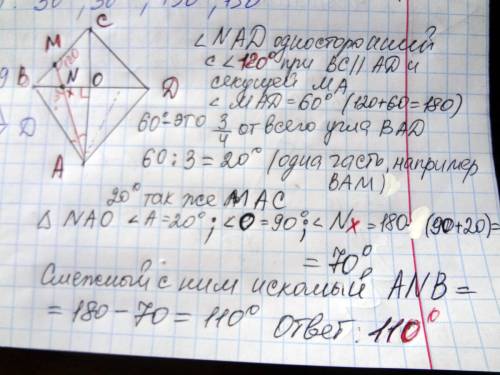 30°, 30°, 150°, 150
C
M
120
B N O D
x
A
D
∠NAD односторонний
с ∠120° при BC||AD и
секущей MA
∠MAD=60° (120+60=180)
60°-это 3/4 от всего угла BAD
60:3=20° (одна часть, например
BAM)
20° так же MAC
△ NAO ∠A=20°; ∠O=90°; ∠Nx=180 (90+20)=
=70°
Смежный с ним искомый ANB=
=180-70=110° Ответ: 110°